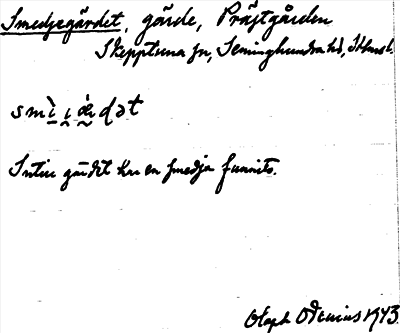 Smedjegärdet, gärde, Prästgården
Skepptuna sn, Seminghundra hd, Uppl.
Intill gärdet har en smedja funnits.
Olaph Odenius 1943.